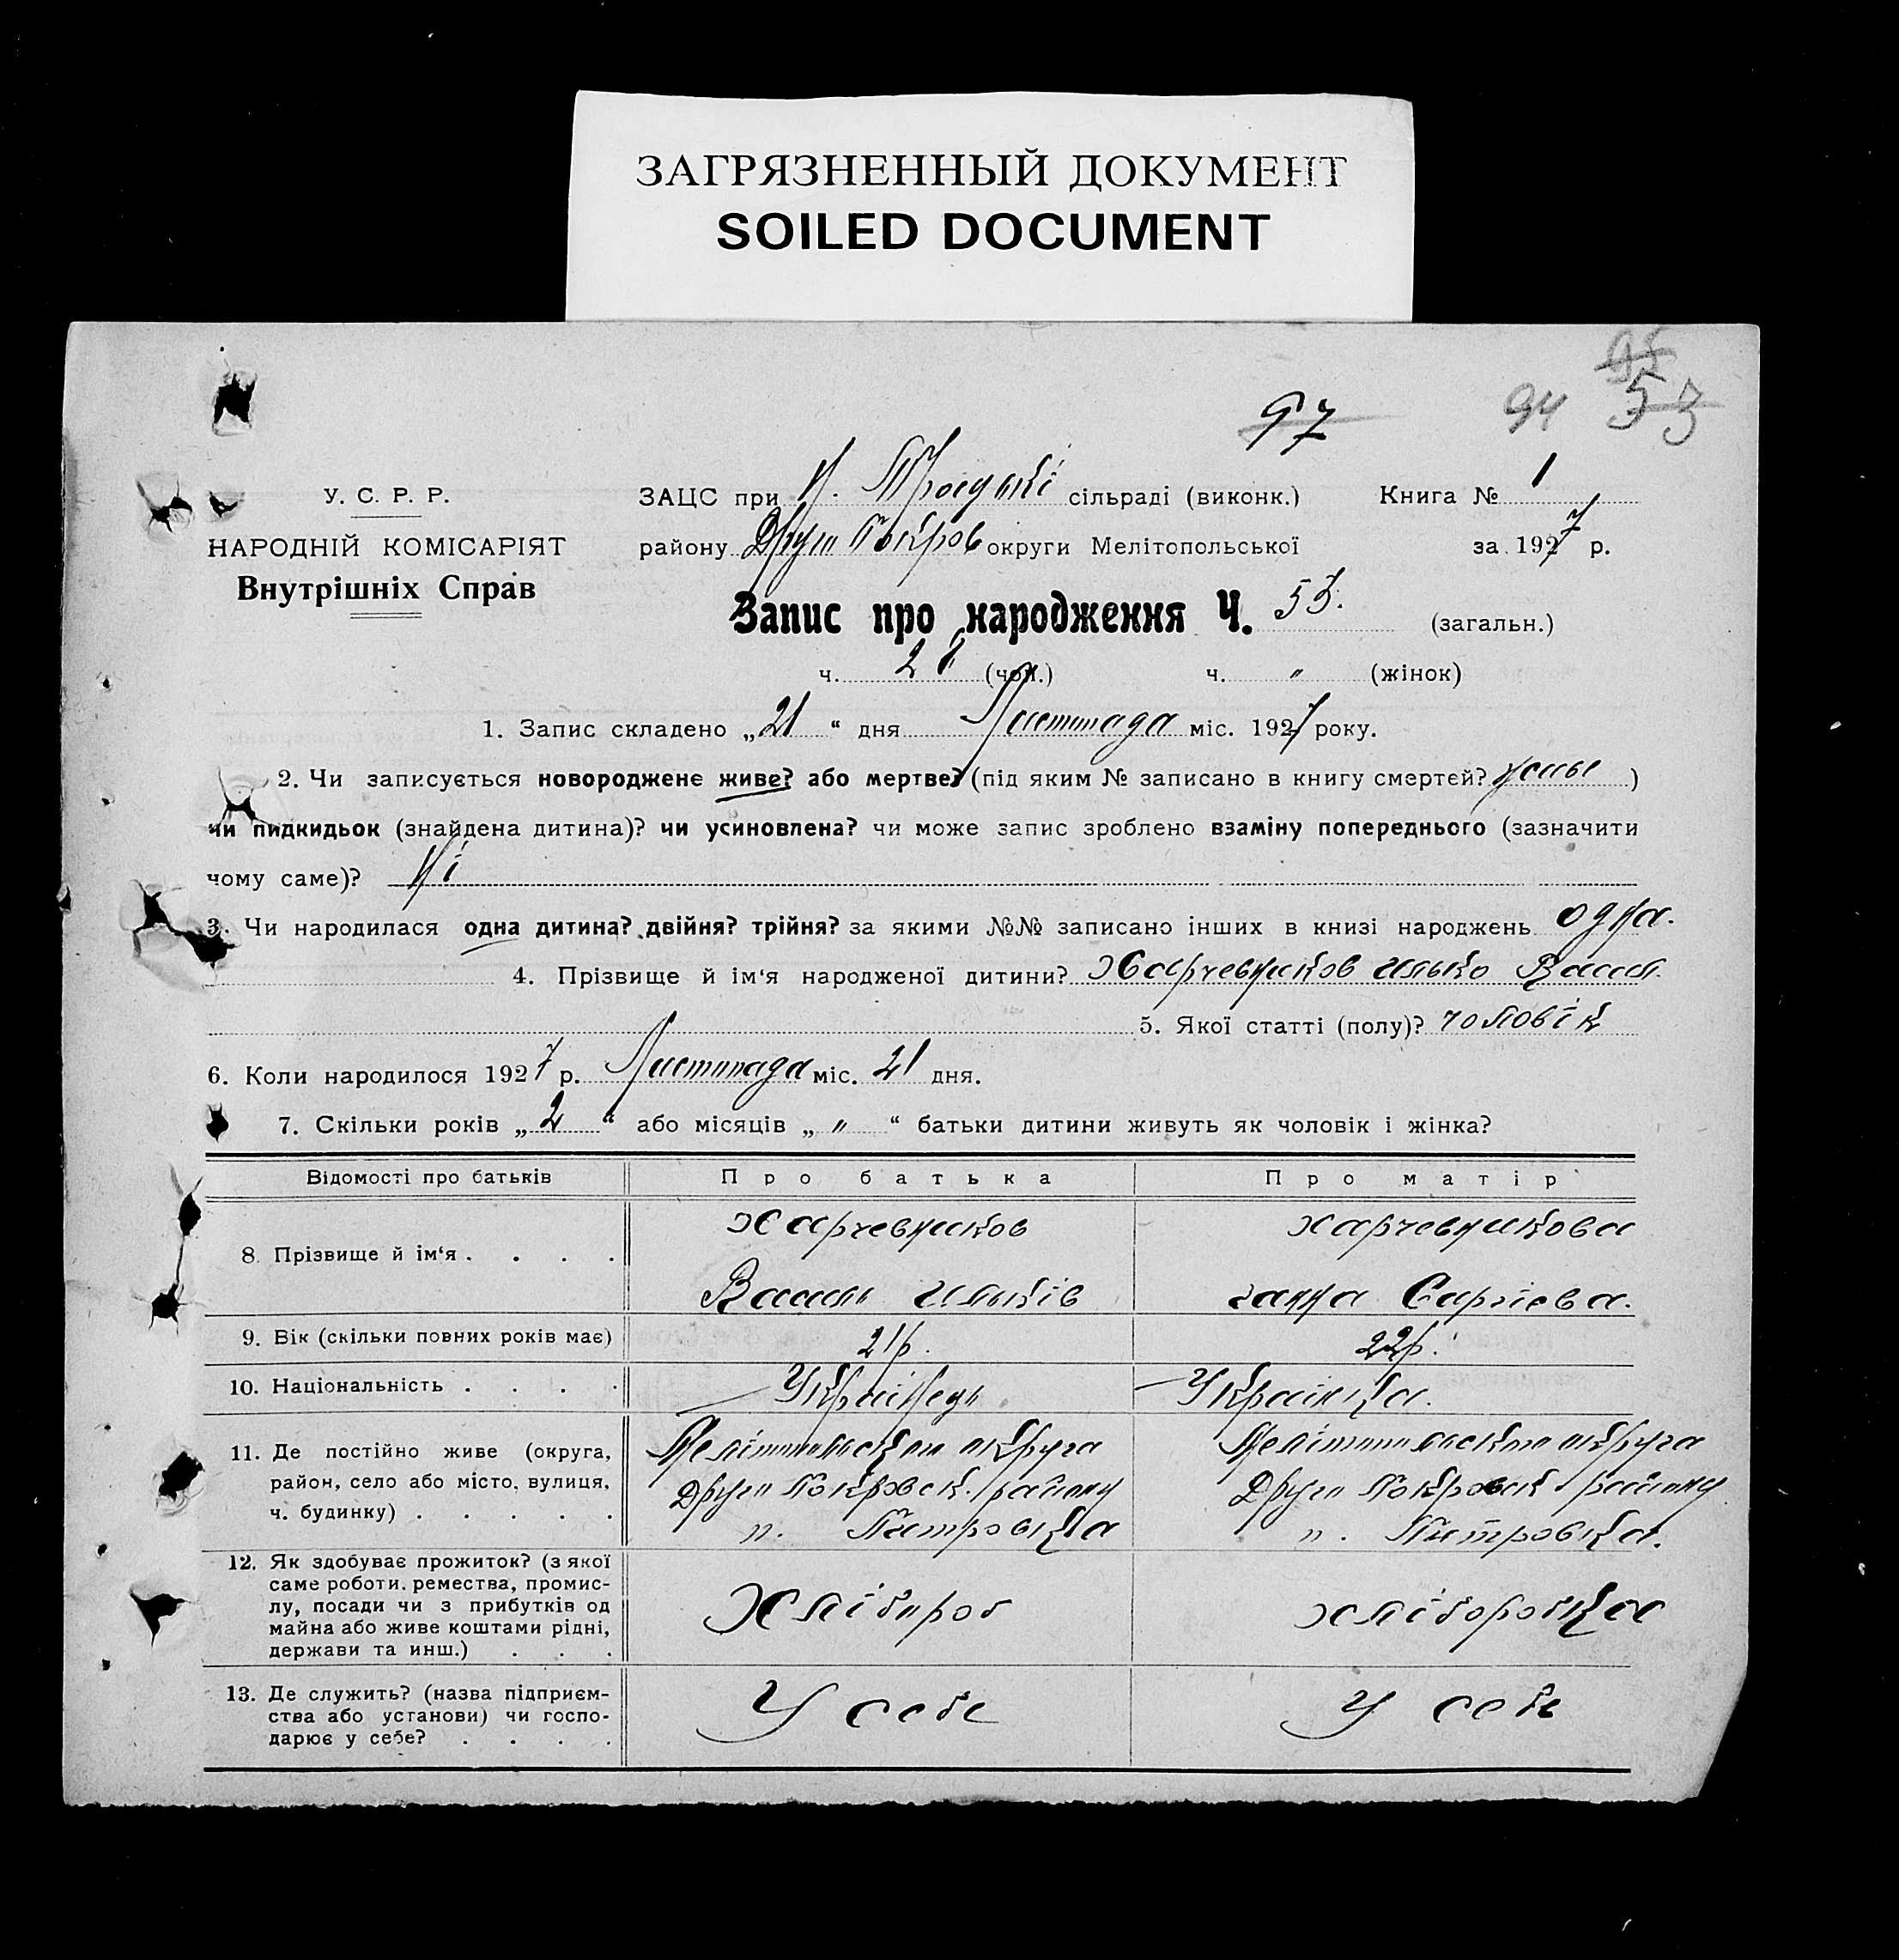 ЗАГРЯЗНЕННЫЙ ДОКУМЕНТ
SOILED DOCUMENT
95
97 94 53
У. С. Р. Р.
НАРОДНІЙ КОМІСАРІЯТ
Внутрішніх Справ
ЗАЦС при Н. Троицькі сільраді (виконк.) Книга № 1
району Друго Покров округи Мелітопольської за 1927 р.
Запис про народження Ч. 53. (загальн.)
ч. 28 (чол.) ч. " (жінок)
1. Запис складено „21“ дня Листопада міс. 1927 року.
2. Чи записується новороджене живе? або мертве? (під яким № записано в книгу смертей? )
чи пидкидьок (знайдена дитина)? чи усиновлена? чи може запис зроблено взаміну попереднього (зазначити
чому саме)? Ні
3. Чи народилася одна дитина? двійня? трійня? за якими №№ записано інших в книзі народжень одна.
4. Прізвище й ім‘я народженої дитини? Харчевников Илько Васил.
5. Якої статті (полу)? чоловік
6. Коли народилося 1927 р. Листопада міс. 21 дня.
7. Скільки років „2“ або місяців „ " “ батьки дитини живуть як чоловік і жінка?
Відомості про батьків Про батька Про матір
8. Прізвище й ім‘я . . . . Харчевников Харчевникова
Василь Ильків Ганна Сергієва.
9. Вік (скільки повних років має) 21р. 22р.
10. Національність . . . . Українець Українка.
11. Де постійно живе (округа, район, село або місто, вулиця, ч. будинку) . . . . .
Мелітопольскои округа Мелітопольскои округа
Друго Покровск. району Друго Покровск району
п. Питровка п. Питровка.
12. Як здобуває прожиток? (з якої
саме роботи, ремества, промис-
лу, посади чи з прибутків од
майна або живе коштами рідні,
держави та инш.) . . .
Хлібороб хліборобка
13. Де служить? (назва підприєм-
ства або установи) чи госпо-
дарює у себе? . . . .
У себе У себе